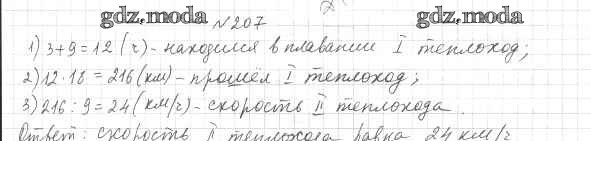 gdz.moda №207 gdz.moda
1) 3+9=12 (ч) - находился в плавании I теплоход;
2) 12·18 = 216 (км) - прошёл I теплоход;
3) 216 : 9 = 24 (км/ч) - скорость II теплохода.
Ответ: скорость II теплохода равна 24 км/ч